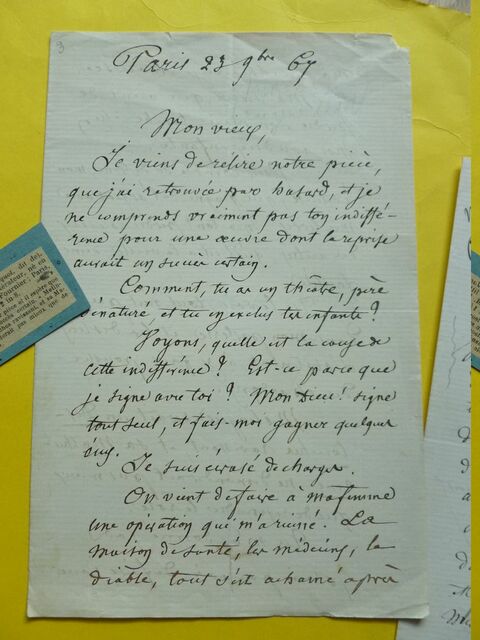 3
Paris 23 9bre 67
Mon vieux,
Je viens de relire notre pièce,
que j'ai retrouvée par hasard, et je
ne comprends vraiment pas ton indiffé-
rence pour une œuvre dont la reprise
aurait un succès certain.
Comment, tu as un théâtre, père
dénaturé, et tu en exclus tes enfants ?
Voyons, quelle est la cause de
cette indifférence ? Est-ce parce que
je signe avec toi ? Mon Dieu ! signe
tout seul, et fais-moi gagner quelques
sous.
Je suis écrasé de charges.
On vient de faire à ma femme
une opération qui m'a ruiné. La
maison de santé, les médecins, le
diable, tout s'est acharné après